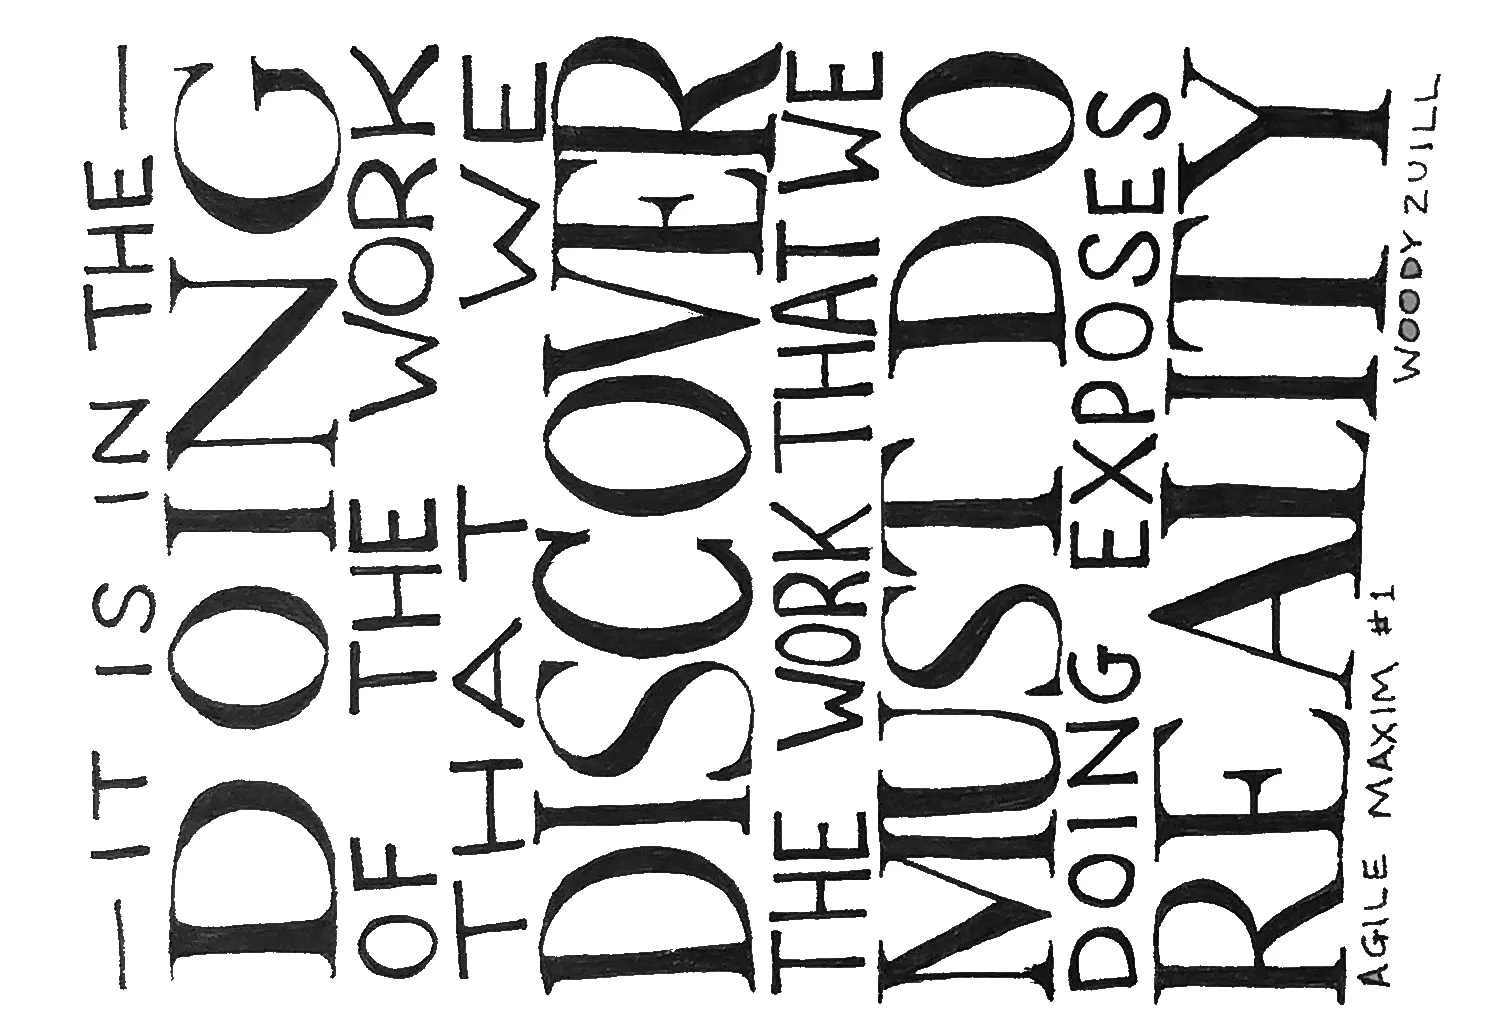 — IT IS IN THE —
DOING
OF THE WORK
THAT WE
DISCOVER
THE WORK THAT WE
MUST DO
DOING EXPOSES
REALITY
AGILE MAXIM #1
WOODY ZUILL